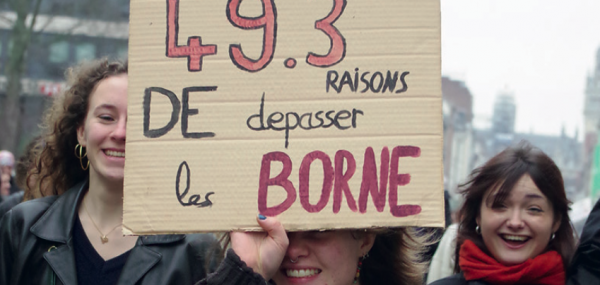 49.3
RAISONS
DE depasser
les BORNE